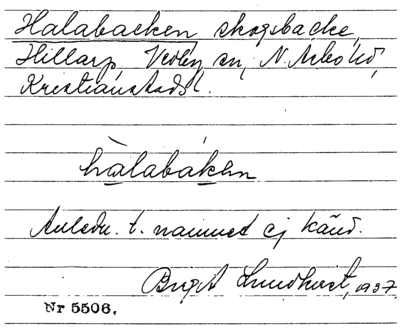 Halabacken skogsbacke,
Hillarp, Vedby sn, N. Åsbo hd,
Kristianstads l.
hàlabákən
Anledn. t. namnet ej känd.
Birgit Lundkvist, 1937.
Nr 5506.